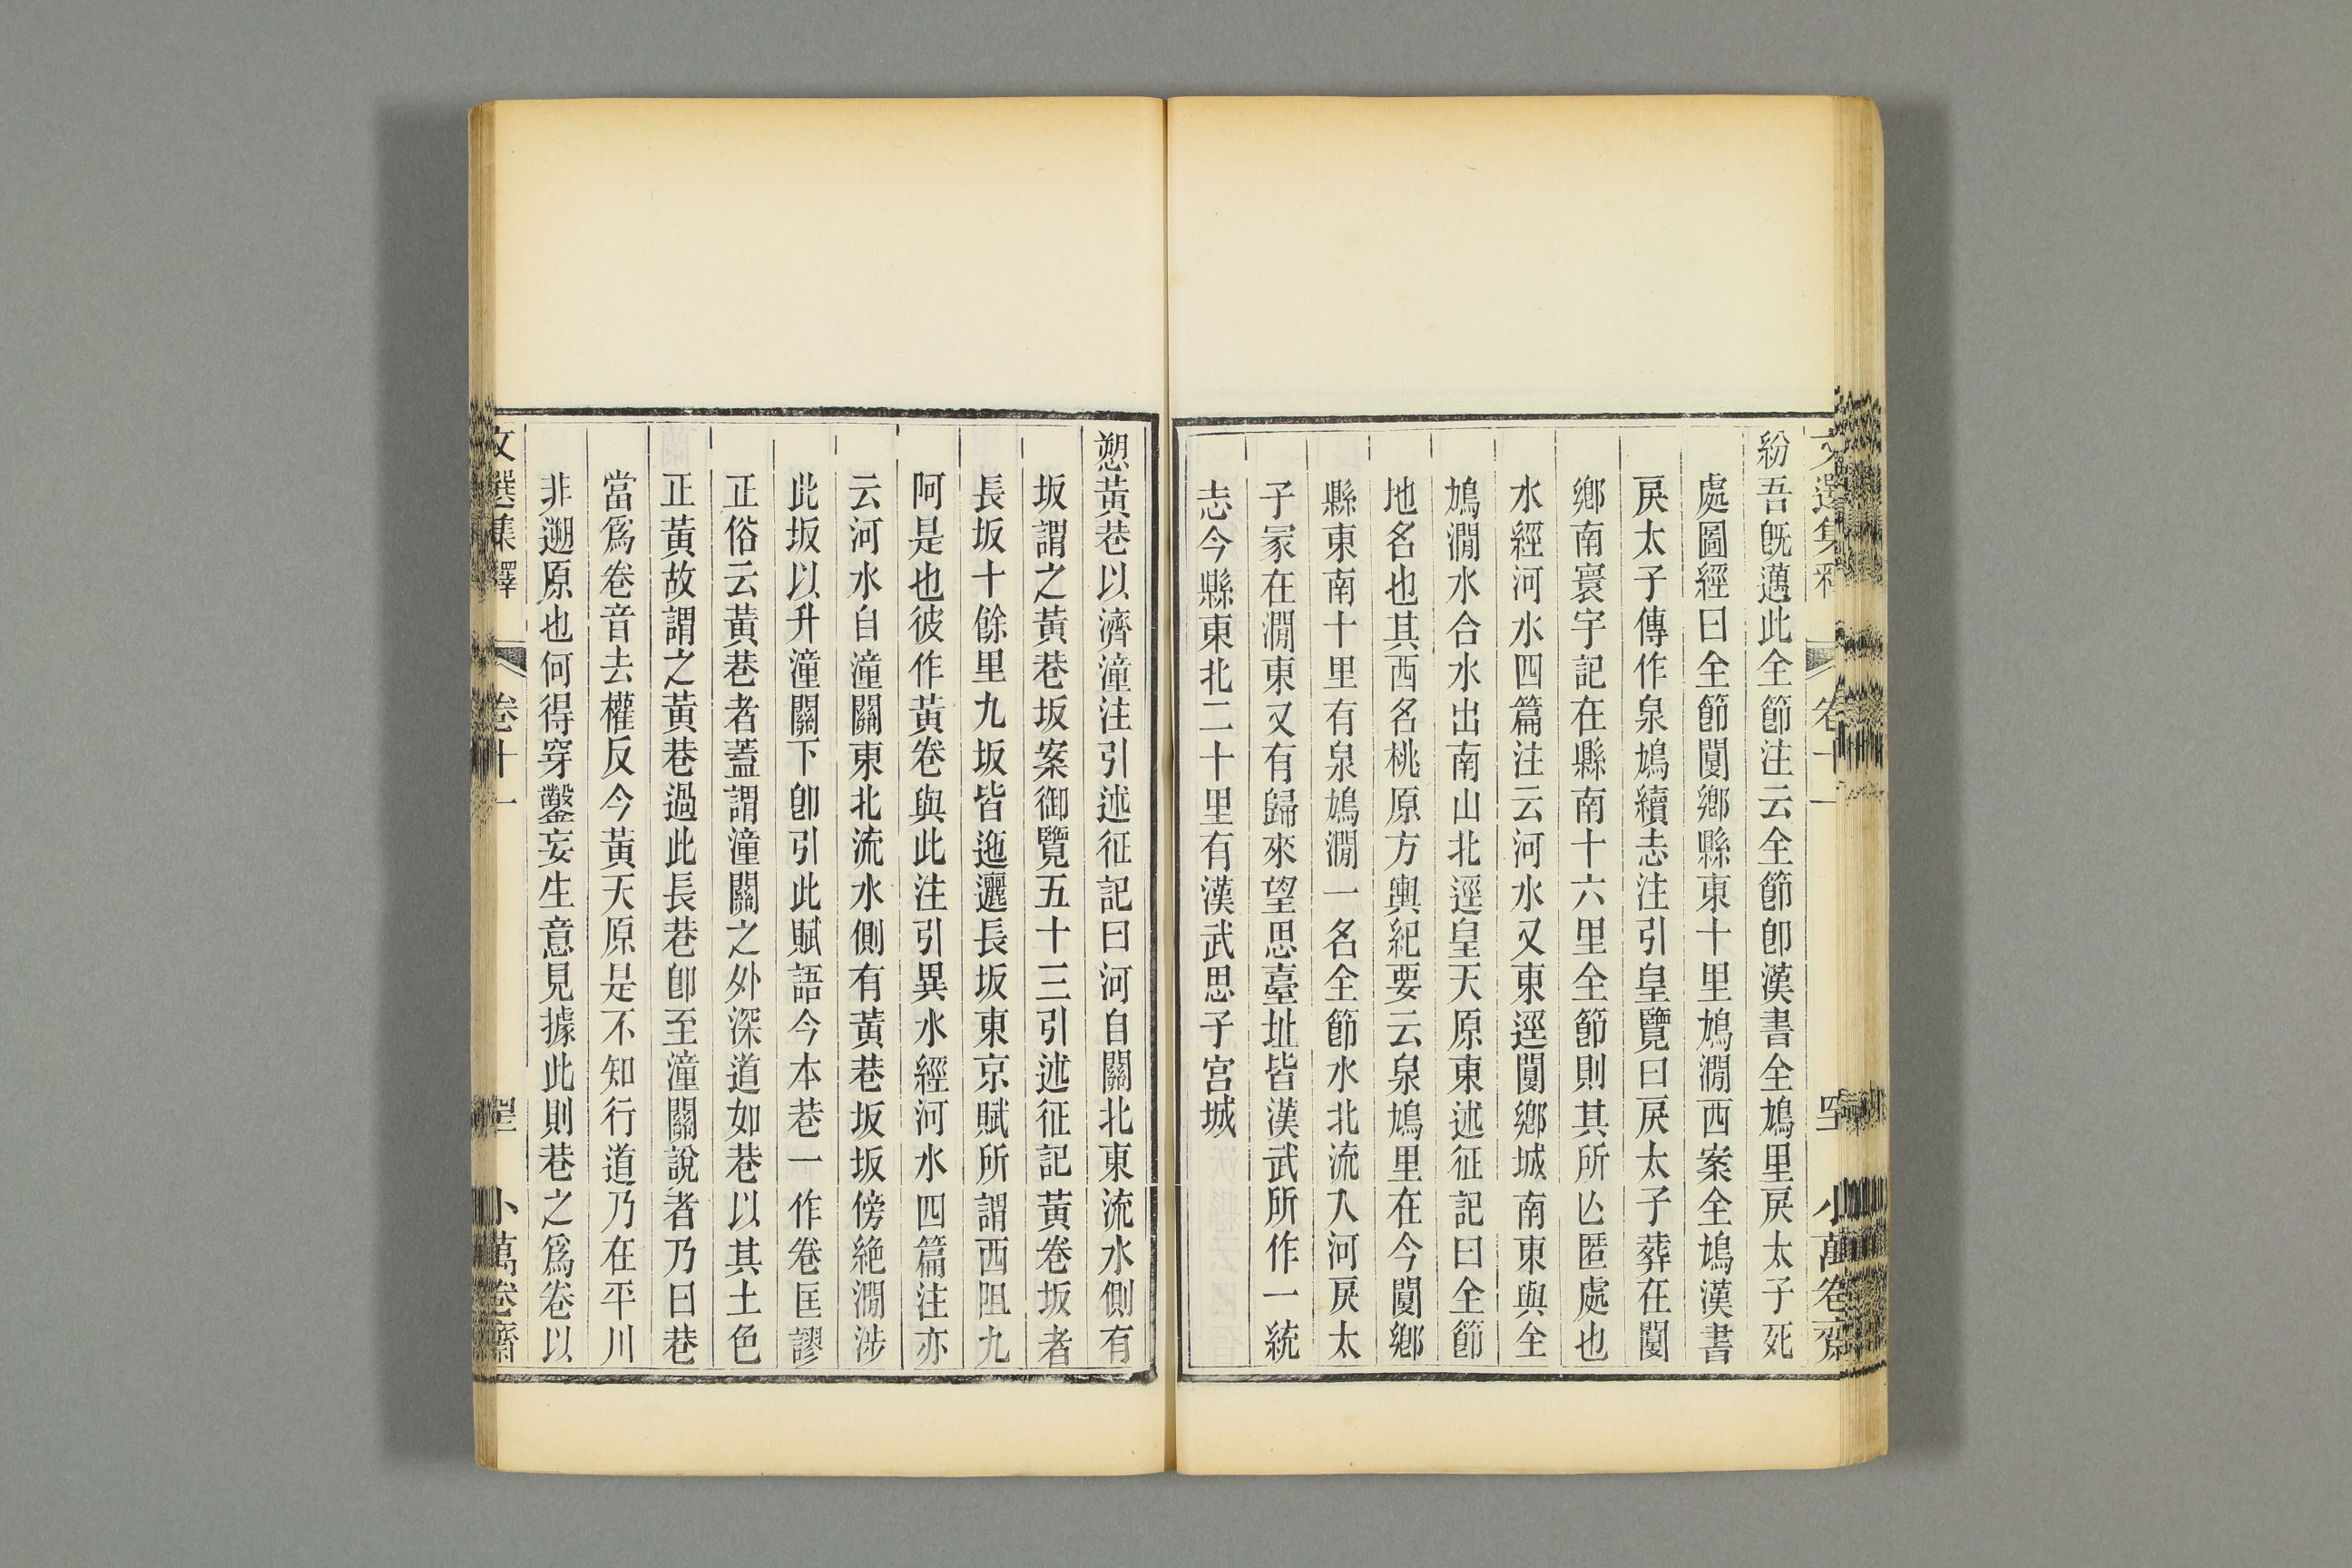 紛吾旣邁此全節注云全節卽漢書全鳩里戾太子死
處圖經曰全節閿鄉縣東十里鳩澗西案全鳩漢書
戾太子傳作泉鳩續志注引皇覽曰戾太子葬在閿
鄉南寰宇記在縣南十六里全節則其所亾匿處也
水經河水四篇注云河水又東逕閿鄉城南東與全
鳩澗水合水出南山北逕皇天原東述征記曰全節
地名也其西名桃原方輿紀要云泉鳩里在今閿鄉
縣東南十里有泉鳩澗一名全節水北流入河戾太
子冢在澗東又有歸來望思臺址皆漢武所作一統
志今縣東北二十里有漢武思子宮城
愬黃巷以濟潼注引述征記曰河自關北東流水側有
坂謂之黃巷坂案御覽五十三引述征記黃卷坂者
長坂十餘里九坂皆迤邐長坂東京賦所謂西阻九
阿是也彼作黃卷與此注引異水經河水四篇注亦
云河水自潼關東北流水側有黃巷坂坂傍絶澗涉
此坂以升潼關下卽引此賦語今本巷一作卷匡謬
正俗云黃巷者蓋謂潼關之外深道如巷以其土色
正黃故謂之黃巷過此長巷卽至潼關說者乃曰巷
當爲卷音去權反今黃天原是不知行道乃在平川
非遡原也何得穿鑿妄生意見據此則巷之爲卷以
文選集釋
卷十一
小萬卷齋